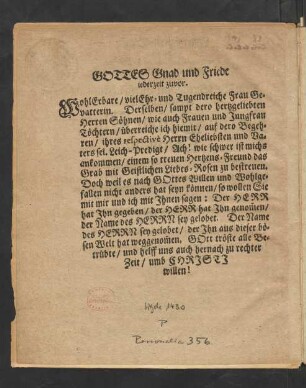 GOTTES Gnad und Friede
iederzeit zuvor.
WohlErbare / vielEhr- und Tugendreiche Frau Ge-
vatterin. Derselben / sampt dero hertzgeliebten
Herren Söhnen / wie auch Frauen und Jungfrau
Töchtern / überreiche ich hiemit / auf dero Begeh-
ren / ihres respectivè Herren Eheliebsten und Va-
ters sel. Leich-Predigt / Ach! wie schwer ist michs
ankommen / einem so treuen Hertzens-Freund das
Grab mit Geistlichen Liebes-Rosen zu bestreuen.
Doch weil es nach GOttes Willen und Wohlge-
fallen nicht anders hat seyn können / so wollen Sie
mit mir und ich mit Ihnen sagen: Der HERR
hat Ihn gegeben / der HERR hat Ihn genom̃en /
der Name des HERRN sey gelobet. Der Name
des HERRN sey gelobet / der Ihn aus dieser bö-
sen Welt hat weggenom̃en. GOtt tröste alle Be-
trübte / und helff uns auch hernach zu rechter
Zeit / umb CHRISTI
willen!
P
Personalia 356